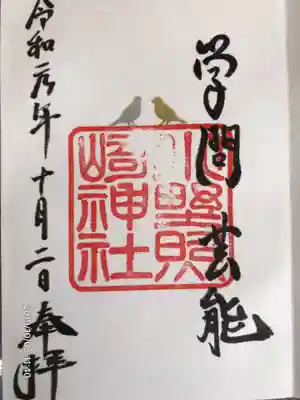 学問芸能
小野照
崎神社
令和元年十月二日奉拝